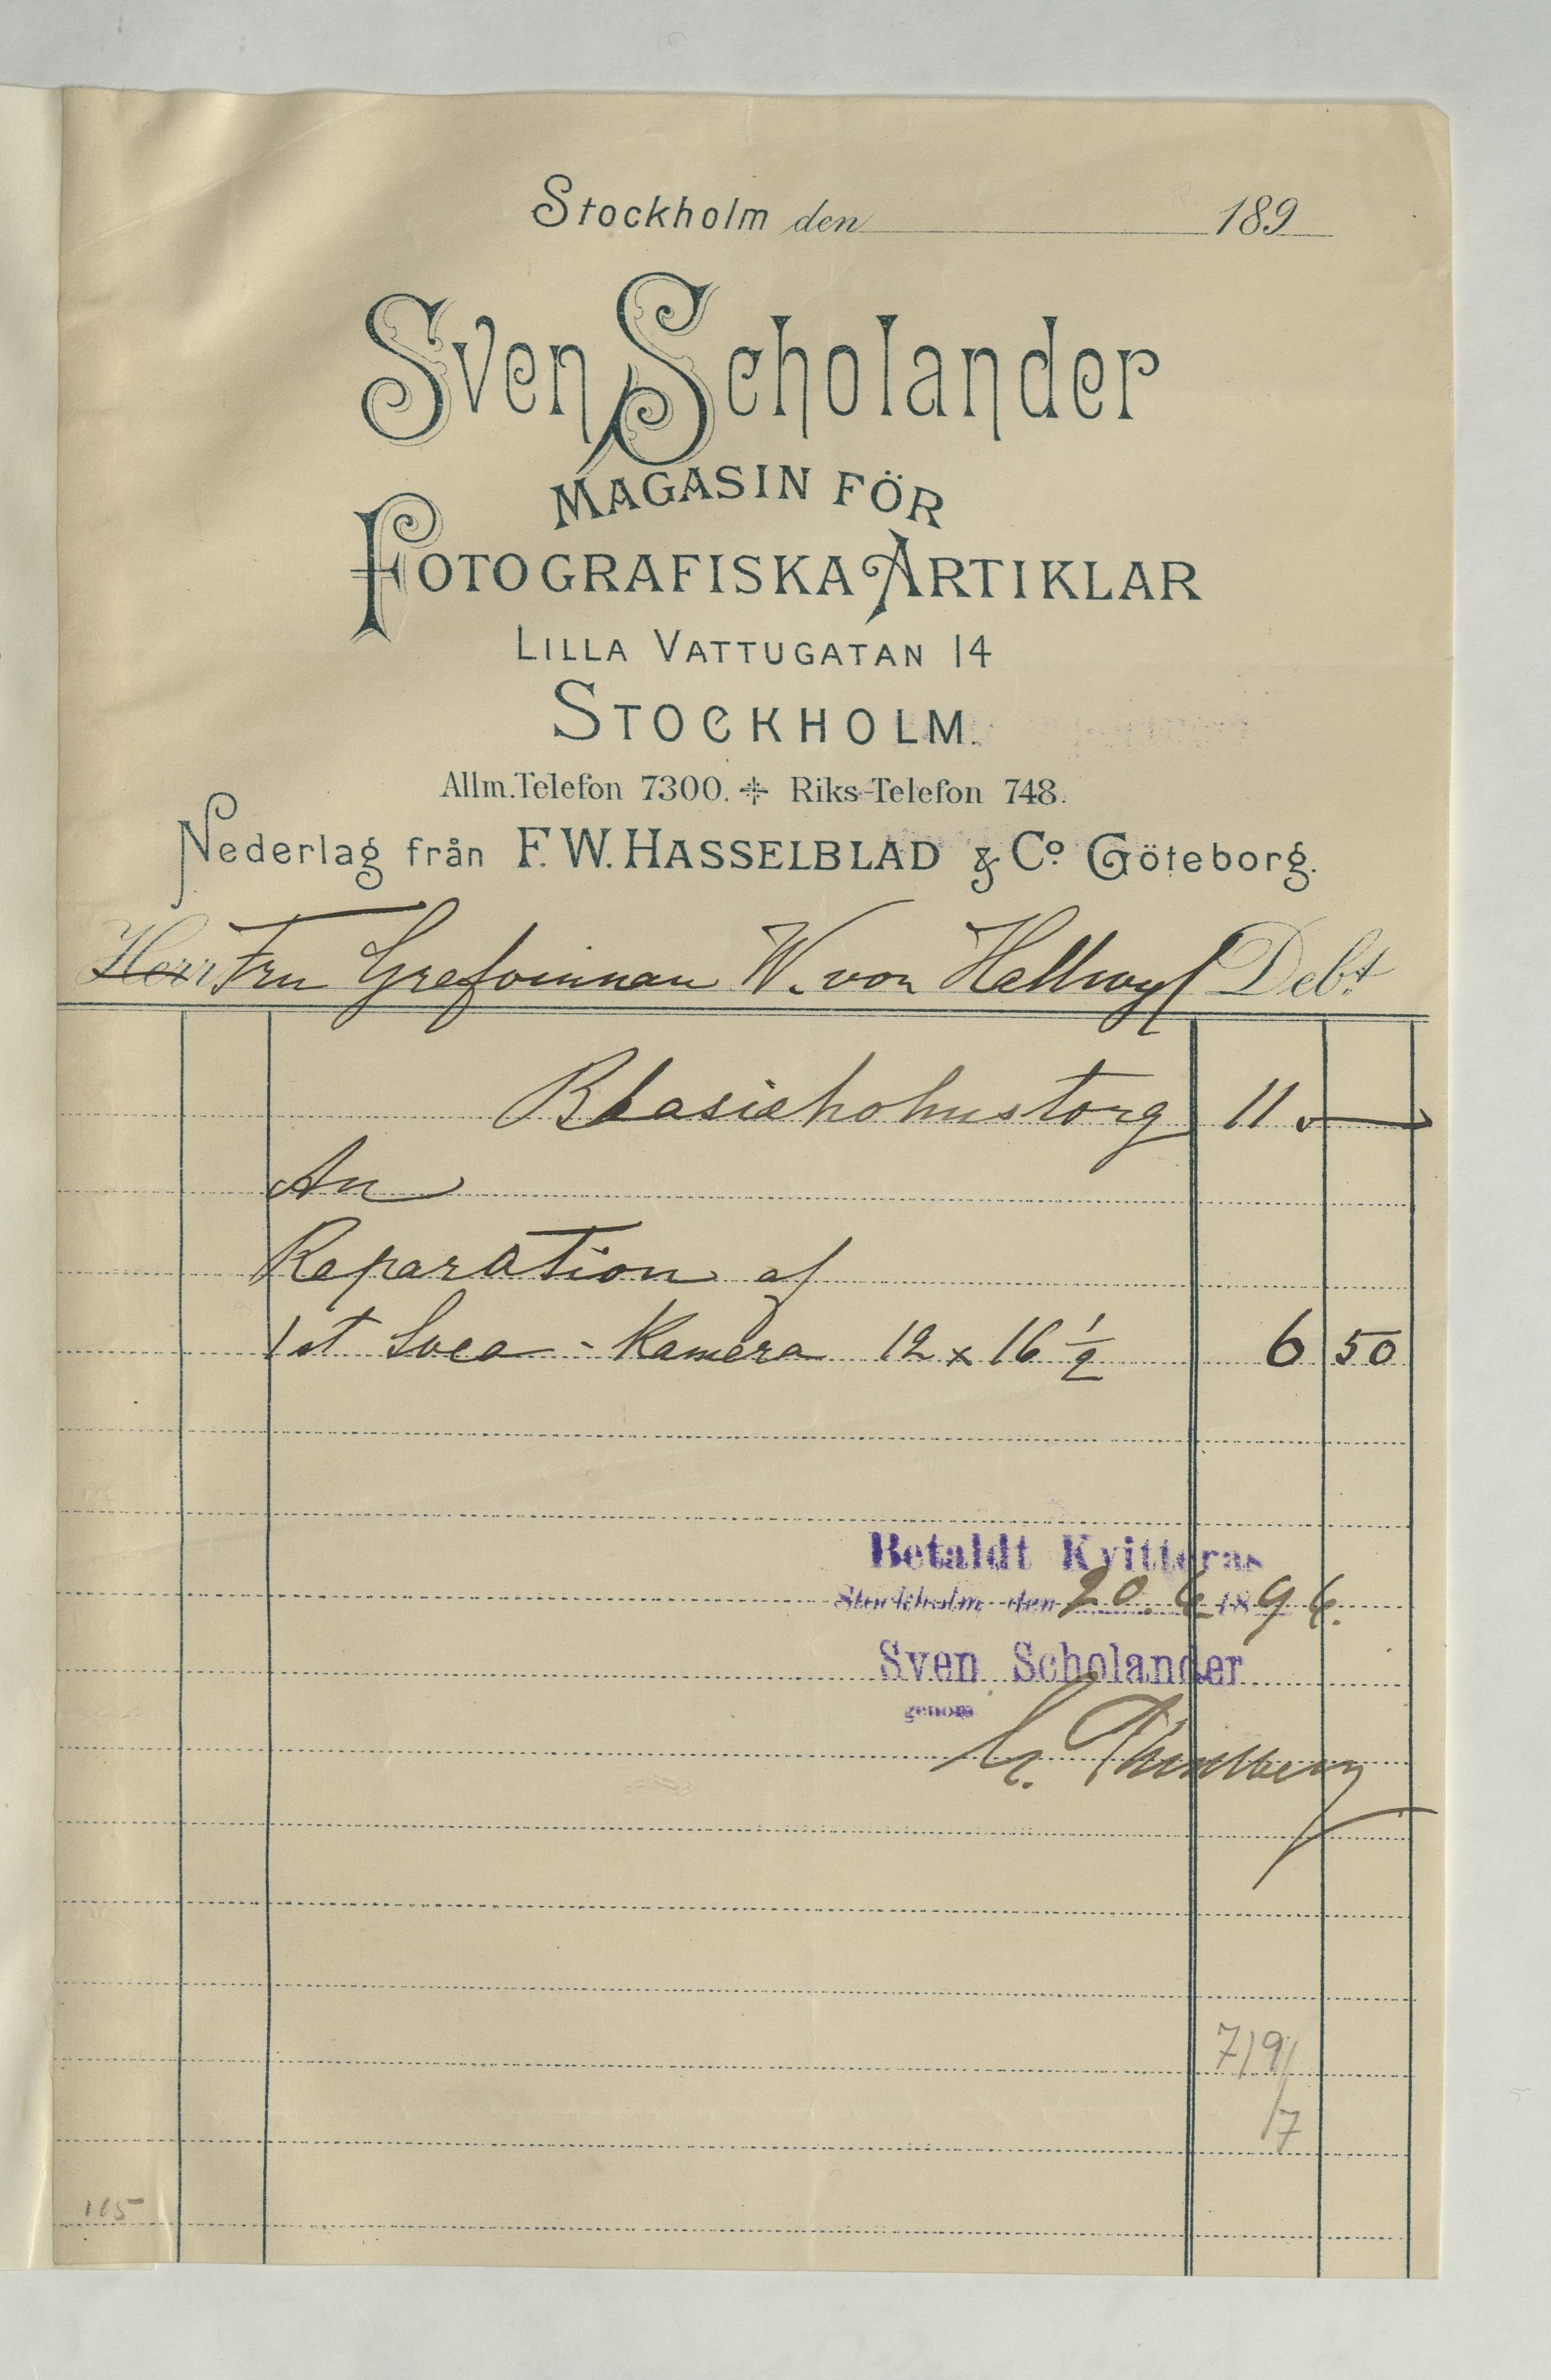 Stockholm den 189
Sven Scholander
MAGASIN FÖR
FOTOGRAFISKA ARTIKLAR
LILLA VATTUGATAN 14
STOCKHOLM.
Allm. Telefon 7300. Riks-Telefon 748.
Nederlag från F. W. HASSELBLAD & Co. Göteborg.
Herr Fru Grefvinnan W. von Hallwyl Debt.
Blasieholmstorg 11.
An
Reparation af
1 st Svea-Kamera 12 x 16 1/2 6 50
Betaldt Kvitteras
Stockholm den 20. 6 1896.
Sven Scholander
genom
719/
/7
165